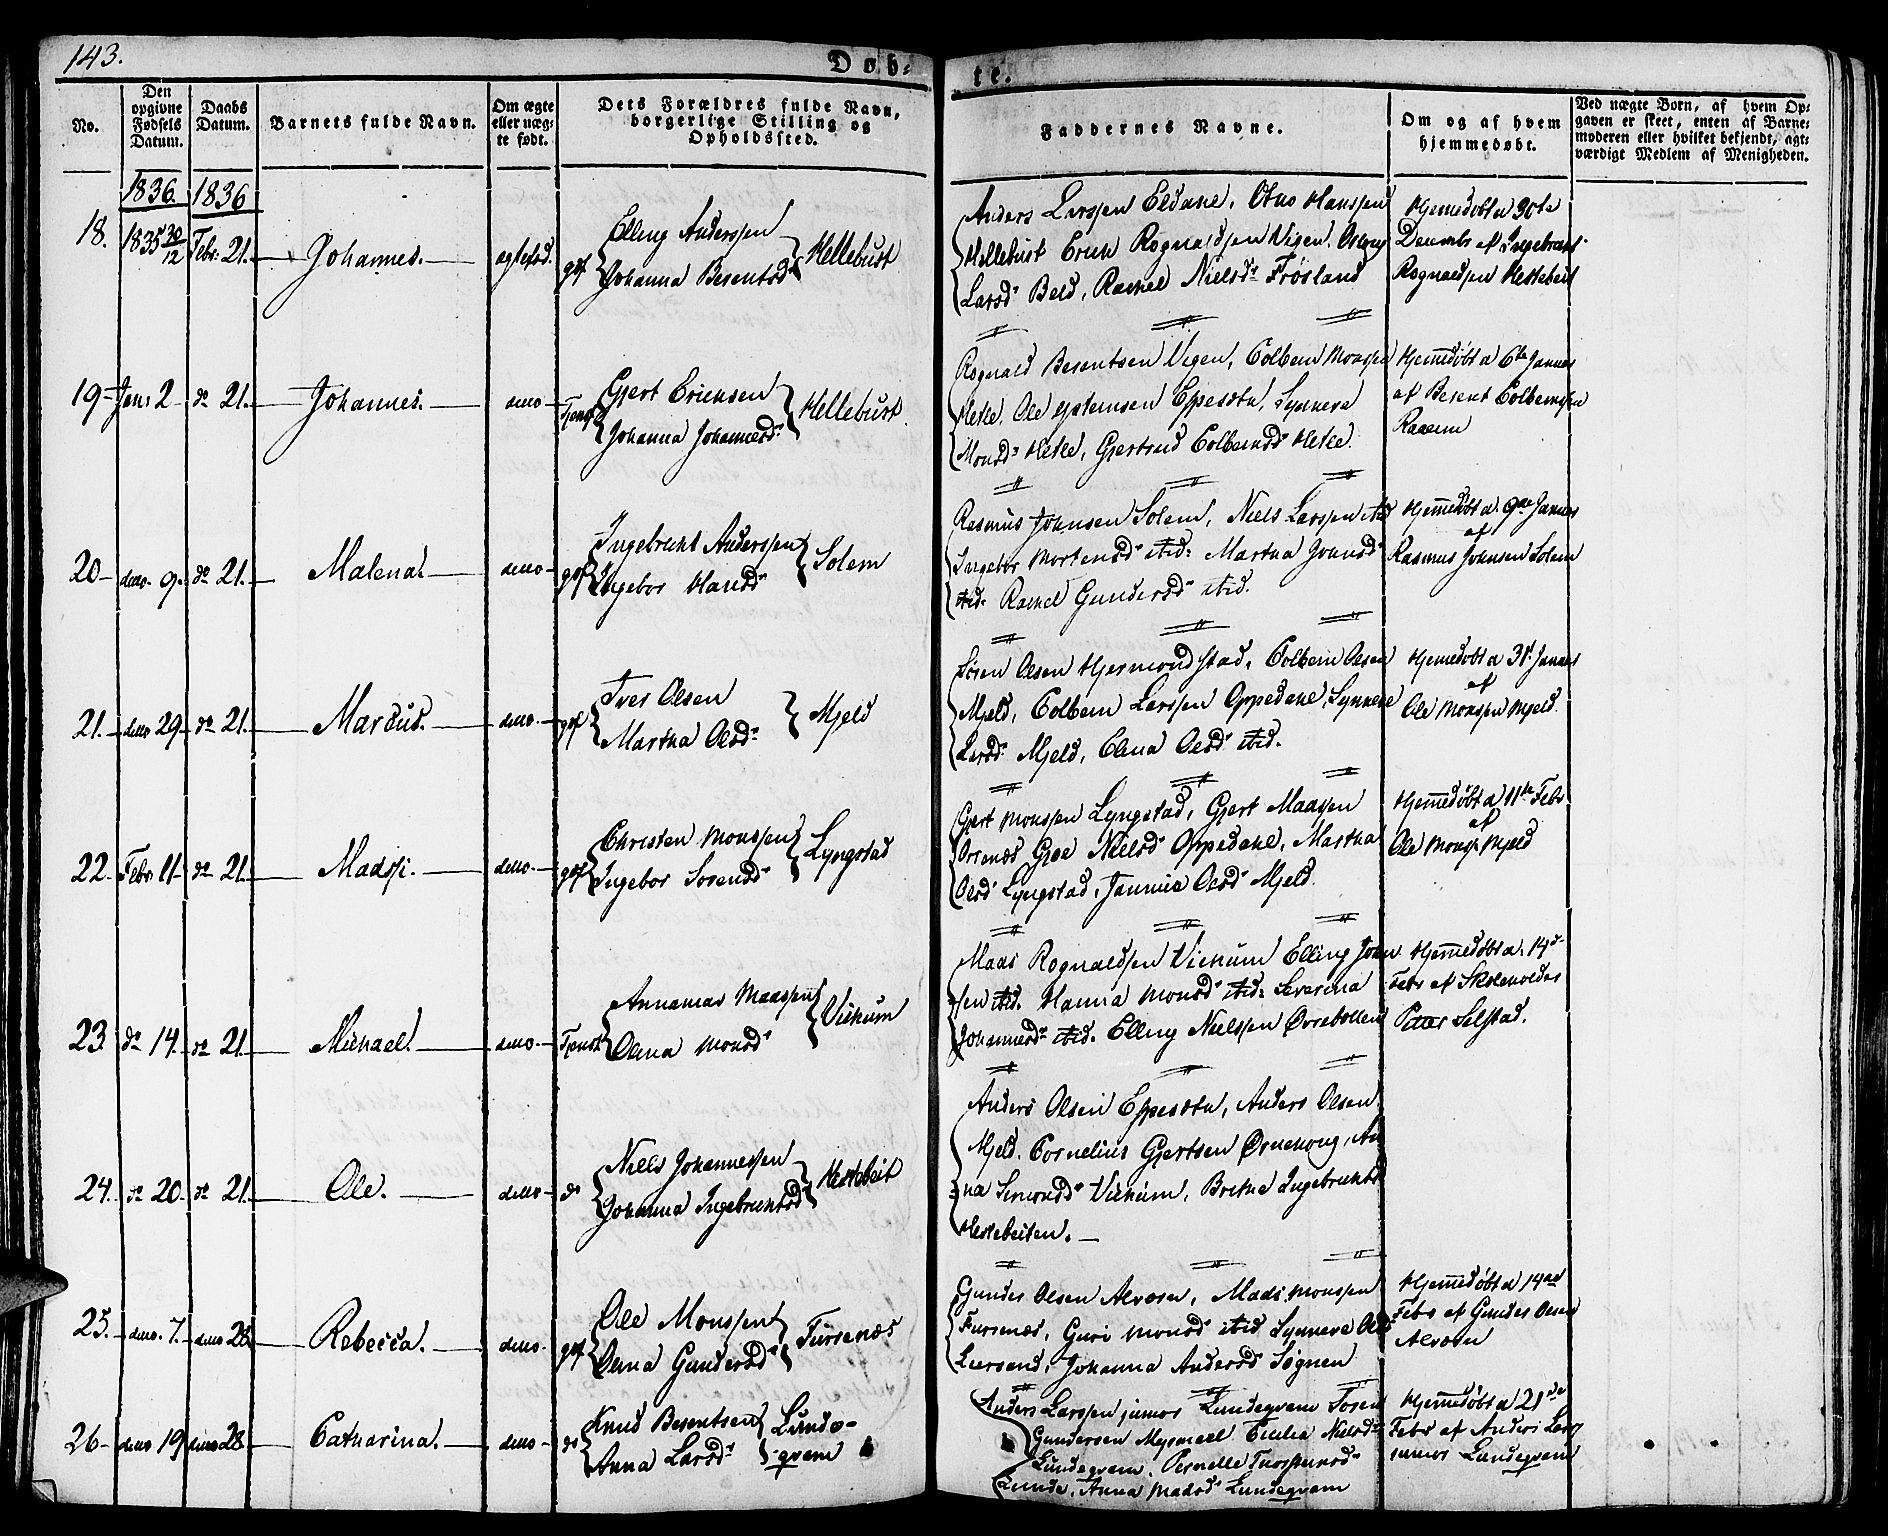 143.
Døb-
te.
No.
Den
opgivne
Fødsels
Datum.
Daabs
Datum.
Barnets fulde Navn.
Om ægte
eller uæg-
te født.
Dets Forældres fulde Navn,
borgerlige Stilling og
Opholdssted.
Faddernes Navne.
Om og af hvem
hjemmedøbt.
Ved uægte Børn, af hvem Op-
gaven er skeet, enten af Barne-
moderen eller hvilket bekjendt, agt-
værdigt Medlem af Menigheden.
1836. 1836
18. 1835 30/12 Febr: 21. Johannes. ægtefød.
gif Elling Anderssen
Johanna Besentsd Hellebust
Anders Larssen Eldahl, Hanssen
Hellebust Erich Rognaldsen Vigen,
Larsd Beld, Rachel Nielsd Frøsland
Hjemmedøbt d 30te
Decembr af Ingebricht
Rognaldsen Hestebeit
19 Jan: 2 do 21. Johannes. demo
Tjenst Gjert Erichsen
Johanna Johannesd Hellebust.
Rognald Besentsen Vigen, Colbein Monssen
Hetle, Ole Espesæth, Synneve
Monsd Hetle, Gjertrud Colbeinsd Hetle.
Hjemmedøbt d 6te Januar
af Besent Colbeinsen
20 demo 9. do 21. Malena. demo
gif Ingebricht Anderssen
Ingebor Hansd Solem
Rasmus Johnsen Solem, Niels Larssen ibid
Ingebor Mortensd ibid: Martha Johnsd
ibid. Rachel Gundersd ibid.
Hjemmedøbt d. 9de Januar
af
Rasmus Johnsen Solem
21. demo 29 do 21. Marcus. demo
gif Iver Olsen
Martha Olsd Mjeld
Søren Olsen Hjermondstad, Colbein Olsen
Mjeld, Colbein Larssen Oppedahl, Synneve
Larsd Mjeld, Olina Olsd ibid.
Hjemmedøbt d 31. Januar
af
Ole Monssen Mjeld.
22 Febr 11 do 21. Madssi. demo
gif Christen Monssen
Ingebor Sørensd Lyngstad
Gjert Monssen Lyngstad, Gjert Maassen
Orsenæs Groe Nielsd Oppedahl, Martha
Olsd Lyngstad, Jannica Olsd Mjeld.
Hjemmedøbt d 11te Febr
af
Ole Monss. Mjeld
23 do 14. do 21. Michael. demo
Tjenst Annanias Maassen
Olina Monsd Vichum
Maas Rognaldsen Vichum Elling John
sen ibid. Hanna Monsd ibid: Severina
Johannesd ibid. Elling Nielssen Øvrebotten
Hjemmedøbt d. 14d
Febr af Skoleholder
Peder Selstad.
24. do 20 do 21. Ole. demo
do Niels Johannessen
Johanna Ingebrichtsd Hestebeit
Anders Olsen Espesæth, Anders Olsen
Mjeld. Cornelius Gjertsen Ørnehoug, An
na Simonsd Vichum, Brithe Ingebrichtsd
Hestebeiten.
25. demo. 7. demo 28 Rebecca. demo
gif Ole Monssen
Olina Gundersd Fursenæs
Gunder Olsen Alværen, Mads Monssen
Fursenæs, Guri Monsd ibid Synneve Olsd
Leersund, Johanna Andersd Søgnen
Hjemmedøbt d 14de
Febr af Gunder Olsen
Alværen
26 demo 19 demo 28 Catharina. demo
do Knud Besentsen
Anna Larsd Lunde-
qvam
Anders Larssen junior Lundeqvam Tosten
Gundersen Cecilia Nielsd
Lundeqvam. Pernelle Thorstensd
Lunde, Anna Madsd Lundeqvam
Hjemmedøbt d 21de
Febr af Anders Larss
junior Lundeqvam